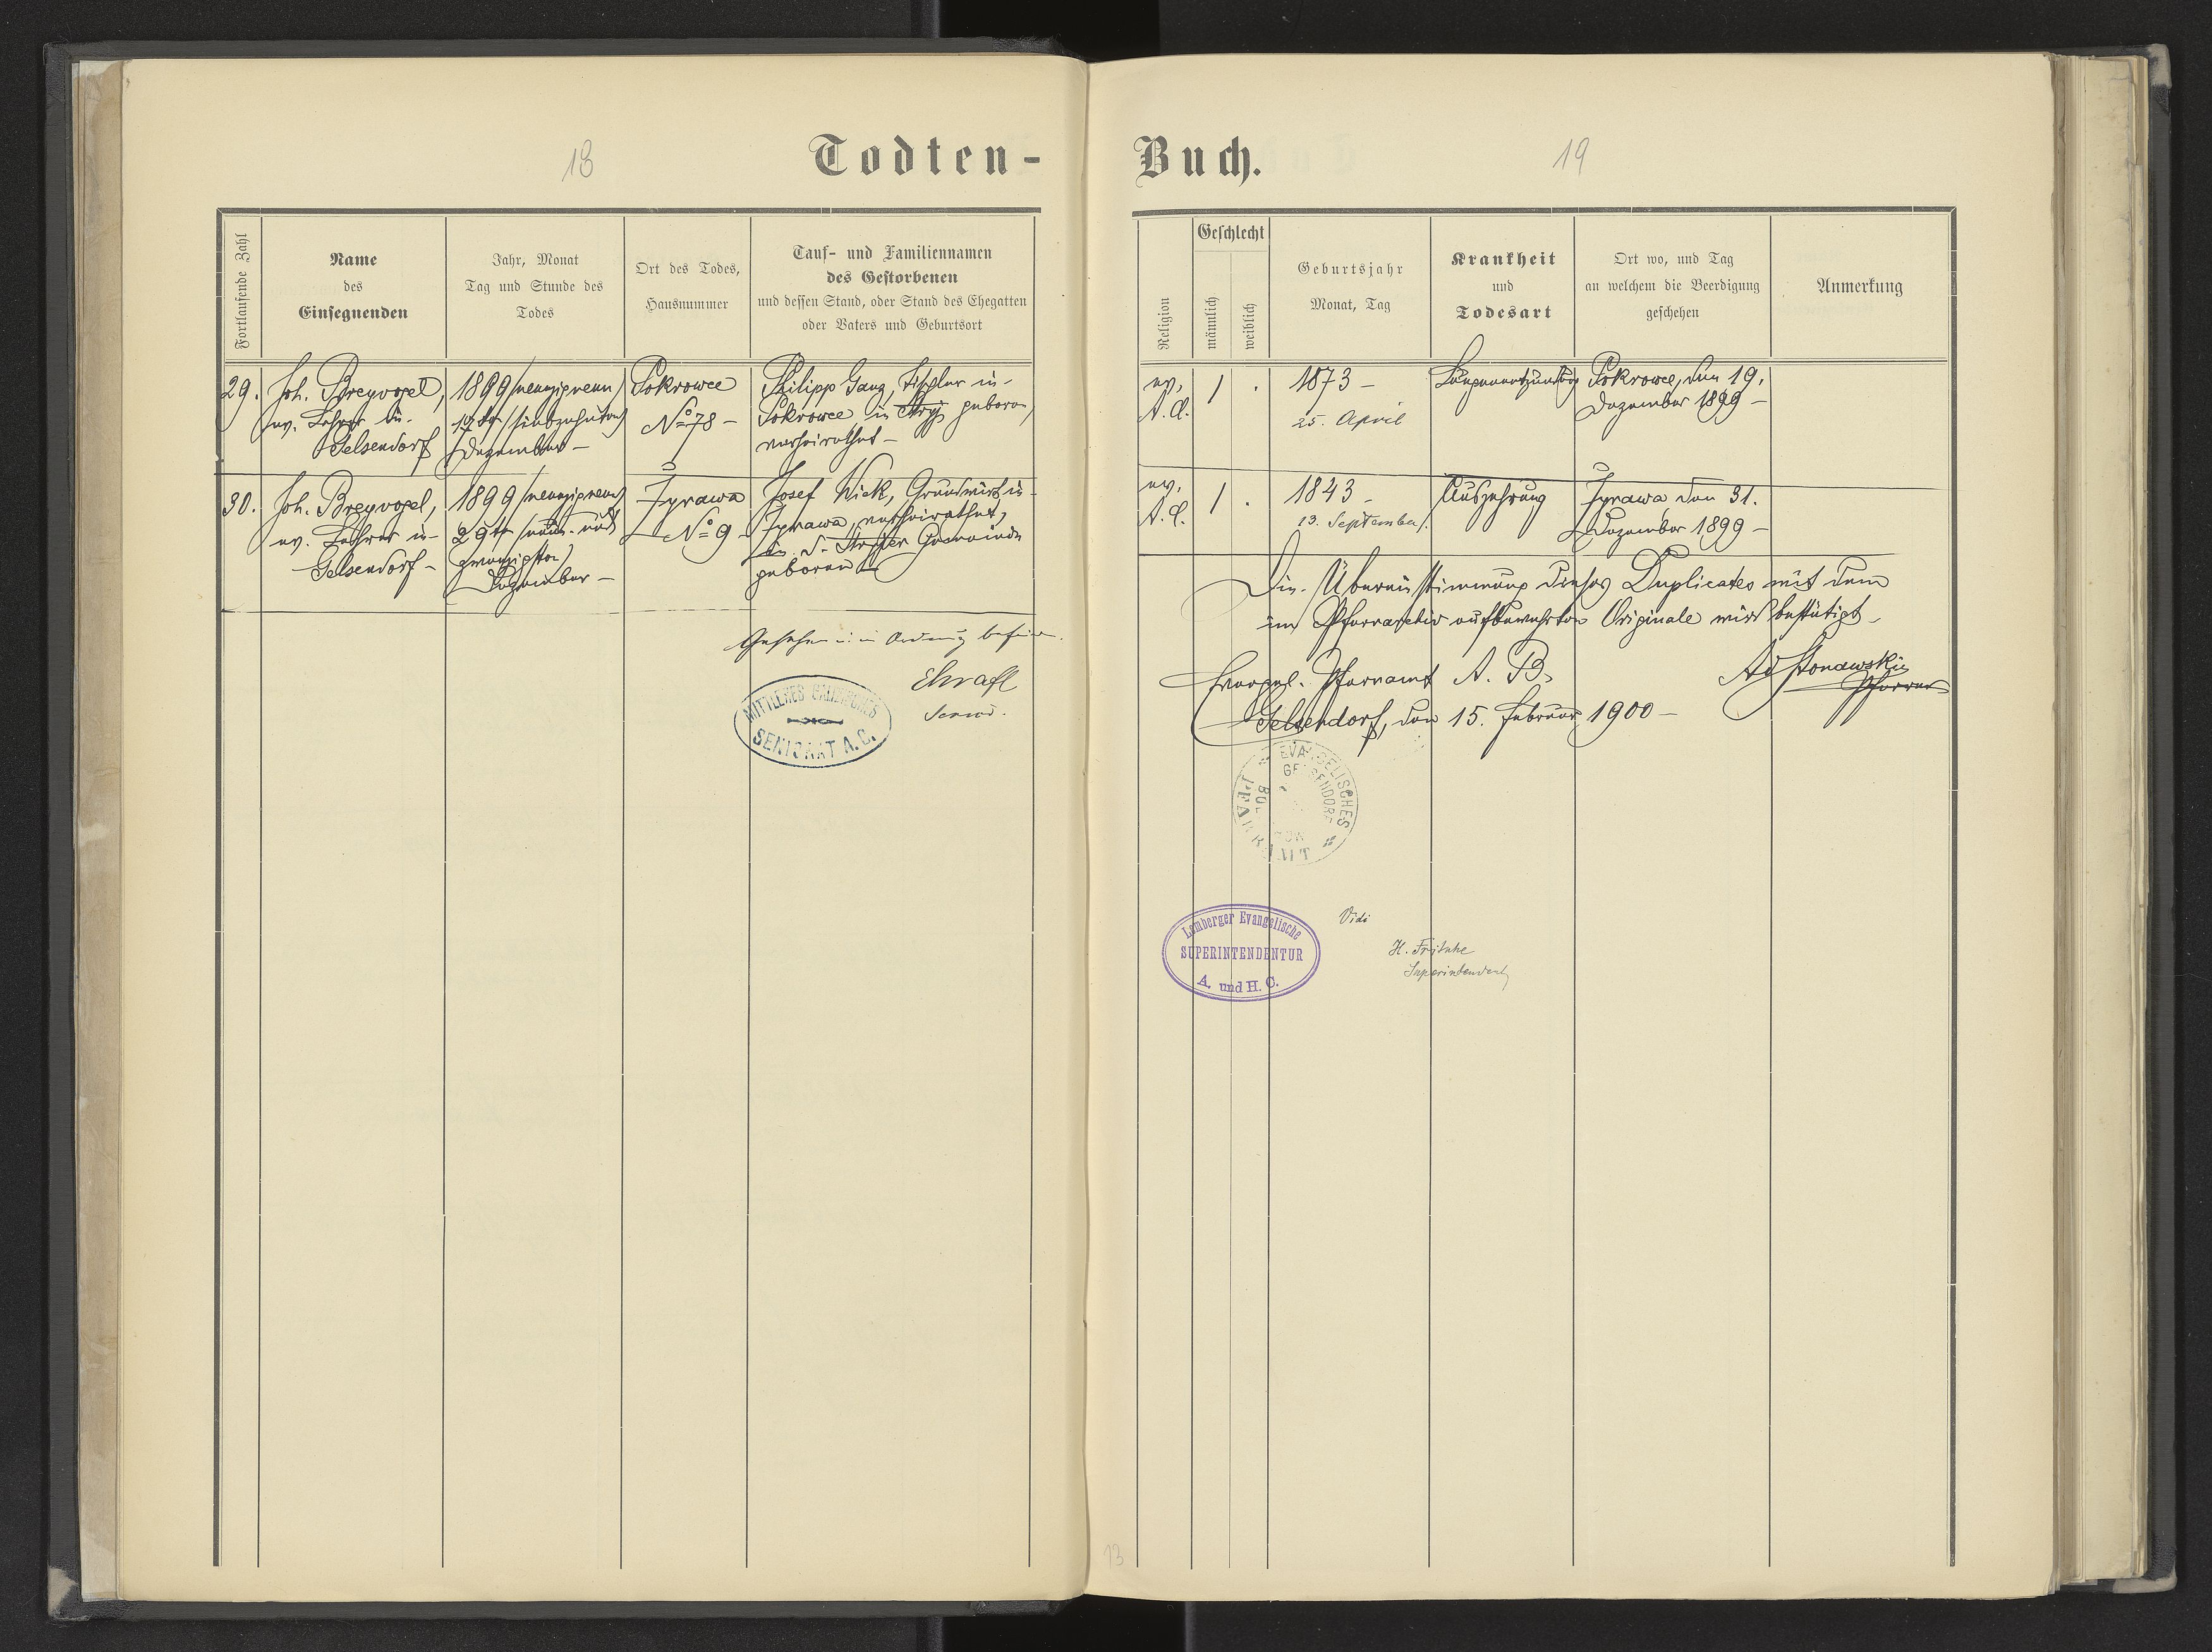 18
Todten-
Fortlaufende Zahl
Name
des
Einsegnenden
Jahr, Monat
Tag und Stunde des
Todes
Ort des Todes,
Hausnummer
Tauf- und Familiennamen
des Gestorbenen
und dessen Stand, oder Stand des Ehegatten
oder Vaters und Geburtsort
29.
Joh. Breyvogel,
ev. Lehrer in
Gelsendorf
1899 (neunzigneun)
17te (siebzehnten)
Dezember –
Pokrowce
No 78 –
Philipp Ganz, Tischler in
Pokrowce in Stryj geboren,
verheirathet –
30.
Joh. Breyvogel,
ev. Lehrer in
Gelsendorf –
1899 (neunzigneun)
29te (neun- und
zwanzigsten)
Dezember –
Żyrawa
No 9 –
Josef Wick, Grundwirth in
Żyrawa, verheirathet,
in d. Stryjer Gemeinde
geboren –
Gesehen u. in Ordnung befunden.
Senior.
MITTLERES GALIZISCHES
SENIORAT A. C.
Buch.
19
Religion
Geschlecht
männlich
weiblich
Geburtsjahr
Monat, Tag
Krankheit
und
Todesart
Ort wo, und Tag
an welchem die Beerdigung
geschehen
Anmerkung
ev.
A. C.
1
.
1873 –
25. April
Lungenentzündung
Pokrowce, den 19.
Dezember 1899 –
ev.
A. C.
1
.
1843 –
13. September
Auszehrung
Żyrawa den 31.
Dezember 1899 –
Die Übereinstimmung dieses Duplicates mit dem
im Pfarrarchiv aufbewahrten Originale wird bestätigt –
Evangel. Pfarramt A. B.
Gelsendorf, den 15. Februar 1900 –
Ad Stonawski
Pfarrer
EVANGELISCHES
GELSENDORF
PFARRAMT
Lemberger Evangelische
SUPERINTENDENTUR
A. und H. C.
Vidi
H. Fritsche
Superintendent
13